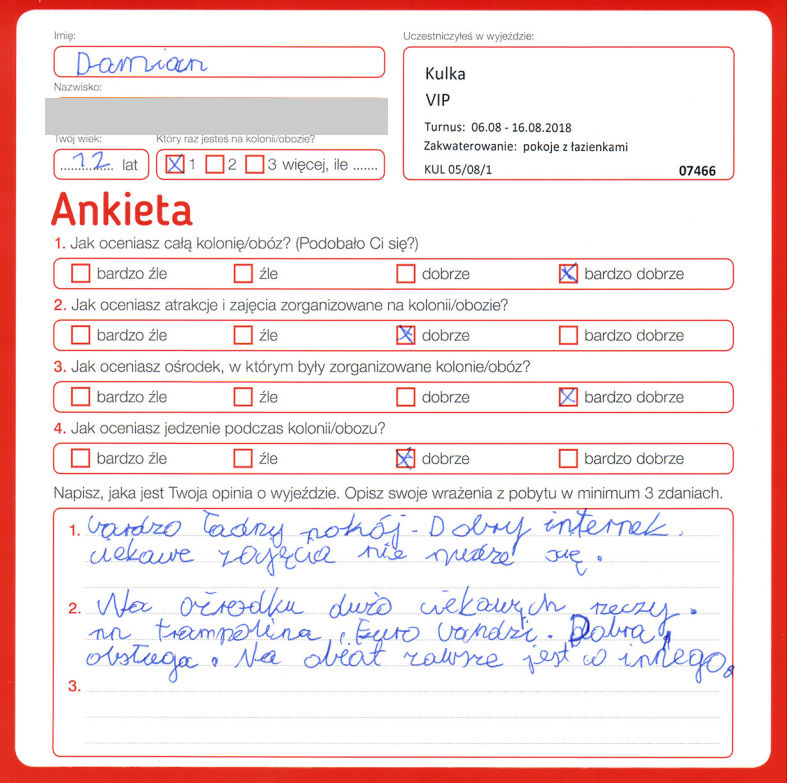 Imię:
Uczestniczyłeś w wyjeździe:
Damian
Nazwisko:
Kulka
VIP
Turnus: 06.08 - 16.08.2018
Zakwaterowanie: pokoje z łazienkami
KUL 05/08/1 07466
Twój wiek:
Który raz jesteś na kolonii/obozie?
12 lat
1 2 3 więcej, ile .......
Ankieta
1. Jak oceniasz całą kolonię/obóz? (Podobało Ci się?)
bardzo źle źle dobrze bardzo dobrze
2. Jak oceniasz atrakcje i zajęcia zorganizowane na kolonii/obozie?
bardzo źle źle dobrze bardzo dobrze
3. Jak oceniasz ośrodek, w którym były zorganizowane kolonie/obóz?
bardzo źle źle dobrze bardzo dobrze
4. Jak oceniasz jedzenie podczas kolonii/obozu?
bardzo źle źle dobrze bardzo dobrze
Napisz, jaka jest Twoja opinia o wyjeździe. Opisz swoje wrażenia z pobytu w minimum 3 zdaniach.
1. bardzo ładny pokój. Dobry internek.
ciekawe zajęcia nie się.
2. Na ośrodku dużo ciekawych rzeczy.
nn trampolina, Euro bandzi. Dobra
obsługa. Na obiat zawsze jest co innego.
3.